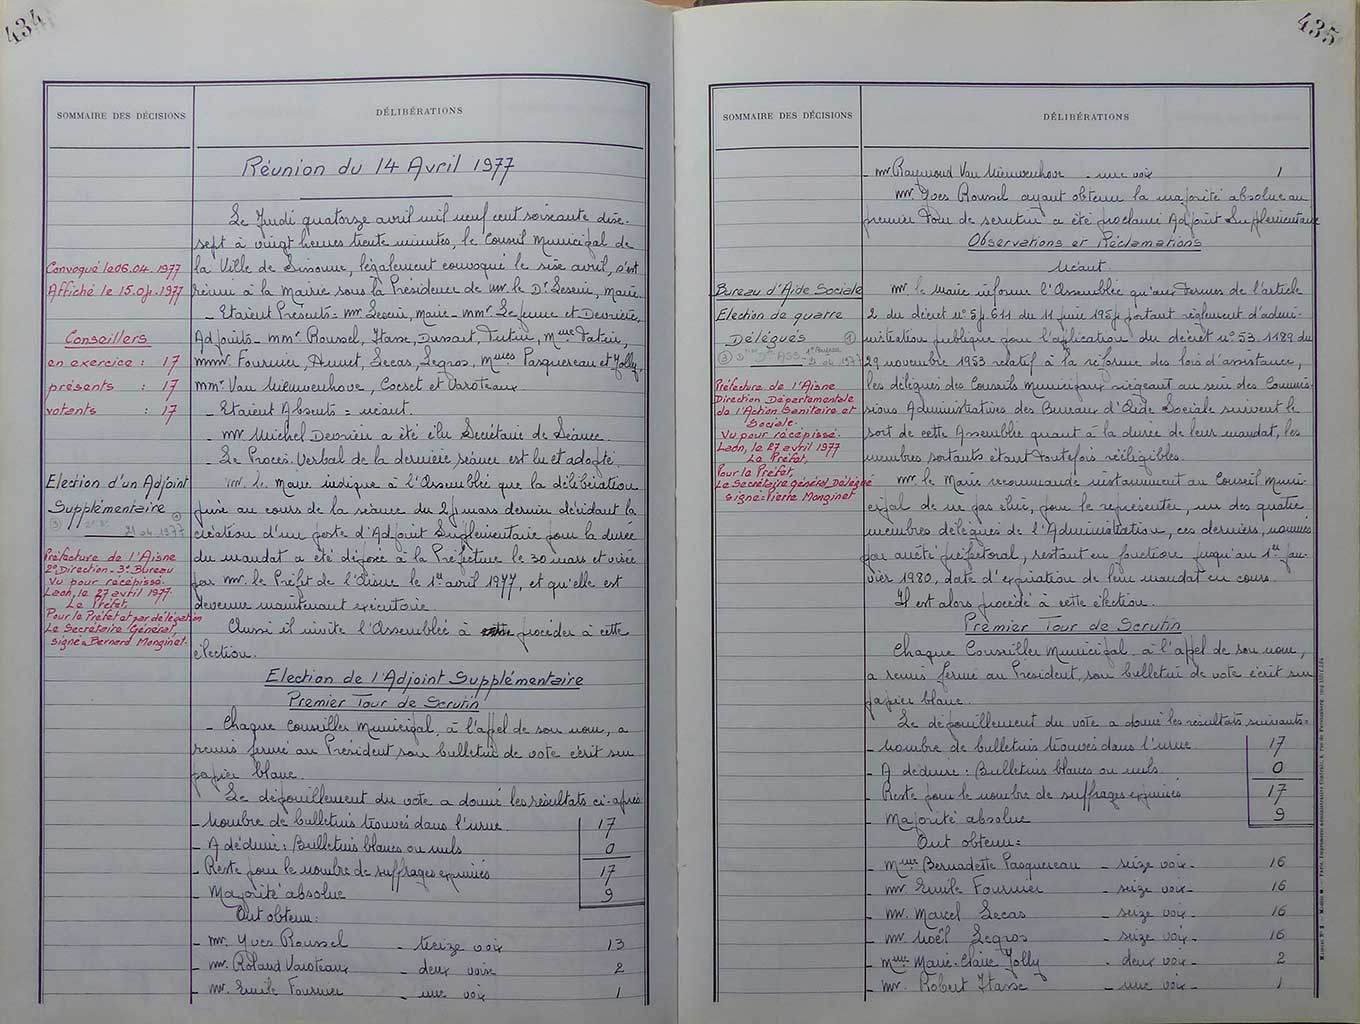 434
SOMMAIRE DES DÉCISIONS
DÉLIBÉRATIONS
Réunion du 14 Avril 1977
Le Jeudi quatorze avril mil neuf cent soixante dix-
sept à vingt heures trente minutes, le Conseil Municipal de
la Ville de Sissonne, légalement convoqué le sise avril, s'est
réuni à la Mairie sous la Présidence de mr. le Dr Seserin, Maire.
- Etaient Présents = mr Seserin, Maire - mmr. Lefevre et Devrière,
Adjoints - mmr. Roussel, Itasse, Dussart, Tutin, Mme Tatin,
mmr. Fournier, Hunet, Lecas, Legros, Mmes Pasquereau et Jolly,
mmr Van Nieuwenhove, Cocset et Varoteaux
- Etaient Absents = néant.
- mr Michel Devrière a été élu Secrétaire de Séance.
- Le Procès-Verbal de la dernière séance est lu et adopté.
mr. le Maire indique à l'Assemblée que la délibération
prise au cours de la séance du 25 mars dernier décidant la
création d'un poste d'Adjoint Supplémentaire pour la durée
du mandat a été déposée à la Préfecture le 30 mars et visée
par mr. le Préfet de l'Aisne le 1er avril 1977, et qu'elle est
devenue maintenant exécutoire.
Aussi il invite l'Assemblée à procéder à cette
élection.
Election de l'Adjoint Supplémentaire
Premier Tour de Scrutin
- Chaque Conseiller Municipal, à l'appel de son nom, a
remis fermé au Président, son bulletin de vote écrit sur
papier blanc.
Le dépouillement du vote a donné les résultats ci-après
- Nombre de bulletins trouvés dans l'urne 17
- A déduire : Bulletins blancs ou nuls 0
- Reste pour le nombre de suffrages exprimés 17
- Majorité absolue 9
Ont obtenu :
- mr. Yves Roussel - treize voix 13
- mr. Roland Varoteaux - deux voix 2
- mr. Emile Fournier - une voix 1
Convoqué le 06.04.1977
Affiché le 15.04.1977
Conseillers
en exercice : 17
présents : 17
votants : 17
Election d'un Adjoint
Supplémentaire
21 04 1977
Préfecture de l'Aisne
2e Direction - 3e Bureau
Vu pour récépissé
Laon, le 27 avril 1977
Le Préfet,
Pour le Préfet et par délégation
Le Secrétaire Général,
signé = Bernard Monginet.
435
SOMMAIRE DES DÉCISIONS
DÉLIBÉRATIONS
- mr. Raymond Van Nieuwenhove - une voix 1
mr. Yves Roussel ayant obtenu la majorité absolue au
premier Tour de scrutin a été proclamé Adjoint Supplémentaire
Observations et Réclamations
Néant.
mr. le Maire informe l'Assemblée qu'aux termes de l'article
2 du décret n° 54.611 du 11 juin 1954 portant règlement d'admi-
nistration publique pour l'application du décret n° 53.1189 du
29 novembre 1953 relatif à la réforme des lois d'assistance,
les délégués des Conseils Municipaux siégeant au sein des Commis-
sions Administratives des Bureaux d'Aide Sociale suivent le
sort de cette Assemblée quant à la durée de leur mandat, les
membres sortants étant toutefois rééligibles.
mr. le Maire recommande instamment au Conseil Muni-
cipal de ne pas élire, pour le représenter, un des quatre
membres délégués de l'Administration, ces derniers, nommés
par arrêté préfectoral, restant en fonction jusqu'au 1er jan-
vier 1980, date d'expiration de leur mandat en cours.
Il est alors procédé à cette élection.
Premier Tour de Scrutin
Chaque Conseiller Municipal, à l'appel de son nom,
a remis fermé au Président, son bulletin de vote écrit sur
papier blanc.
Le dépouillement du vote a donné les résultats suivants =
- Nombre de bulletins trouvés dans l'urne 17
- A déduire : Bulletins blancs ou nuls 0
- Reste pour le nombre de suffrages exprimés 17
- Majorité absolue 9
Ont obtenu :
- Mme Bernadette Pasquereau - seize voix - 16
- mr. Emile Fournier - seize voix - 16
- mr. Marcel Lecas - seize voix - 16
- mr. Noël Legros - seize voix - 16
- Mme Marie-Claire Jolly - deux voix - 2
- mr. Robert Itasse - une voix - 1
Bureau d'Aide Sociale
Election de quatre
Délégués
Préfecture de l'Aisne
Direction Départementale
de l'Action Sanitaire et
Sociale.
Vu pour récépissé.
Laon, le 27 avril 1977
Le Préfet,
Pour le Préfet,
Le Secrétaire général Délégué
signé = Pierre Monginet